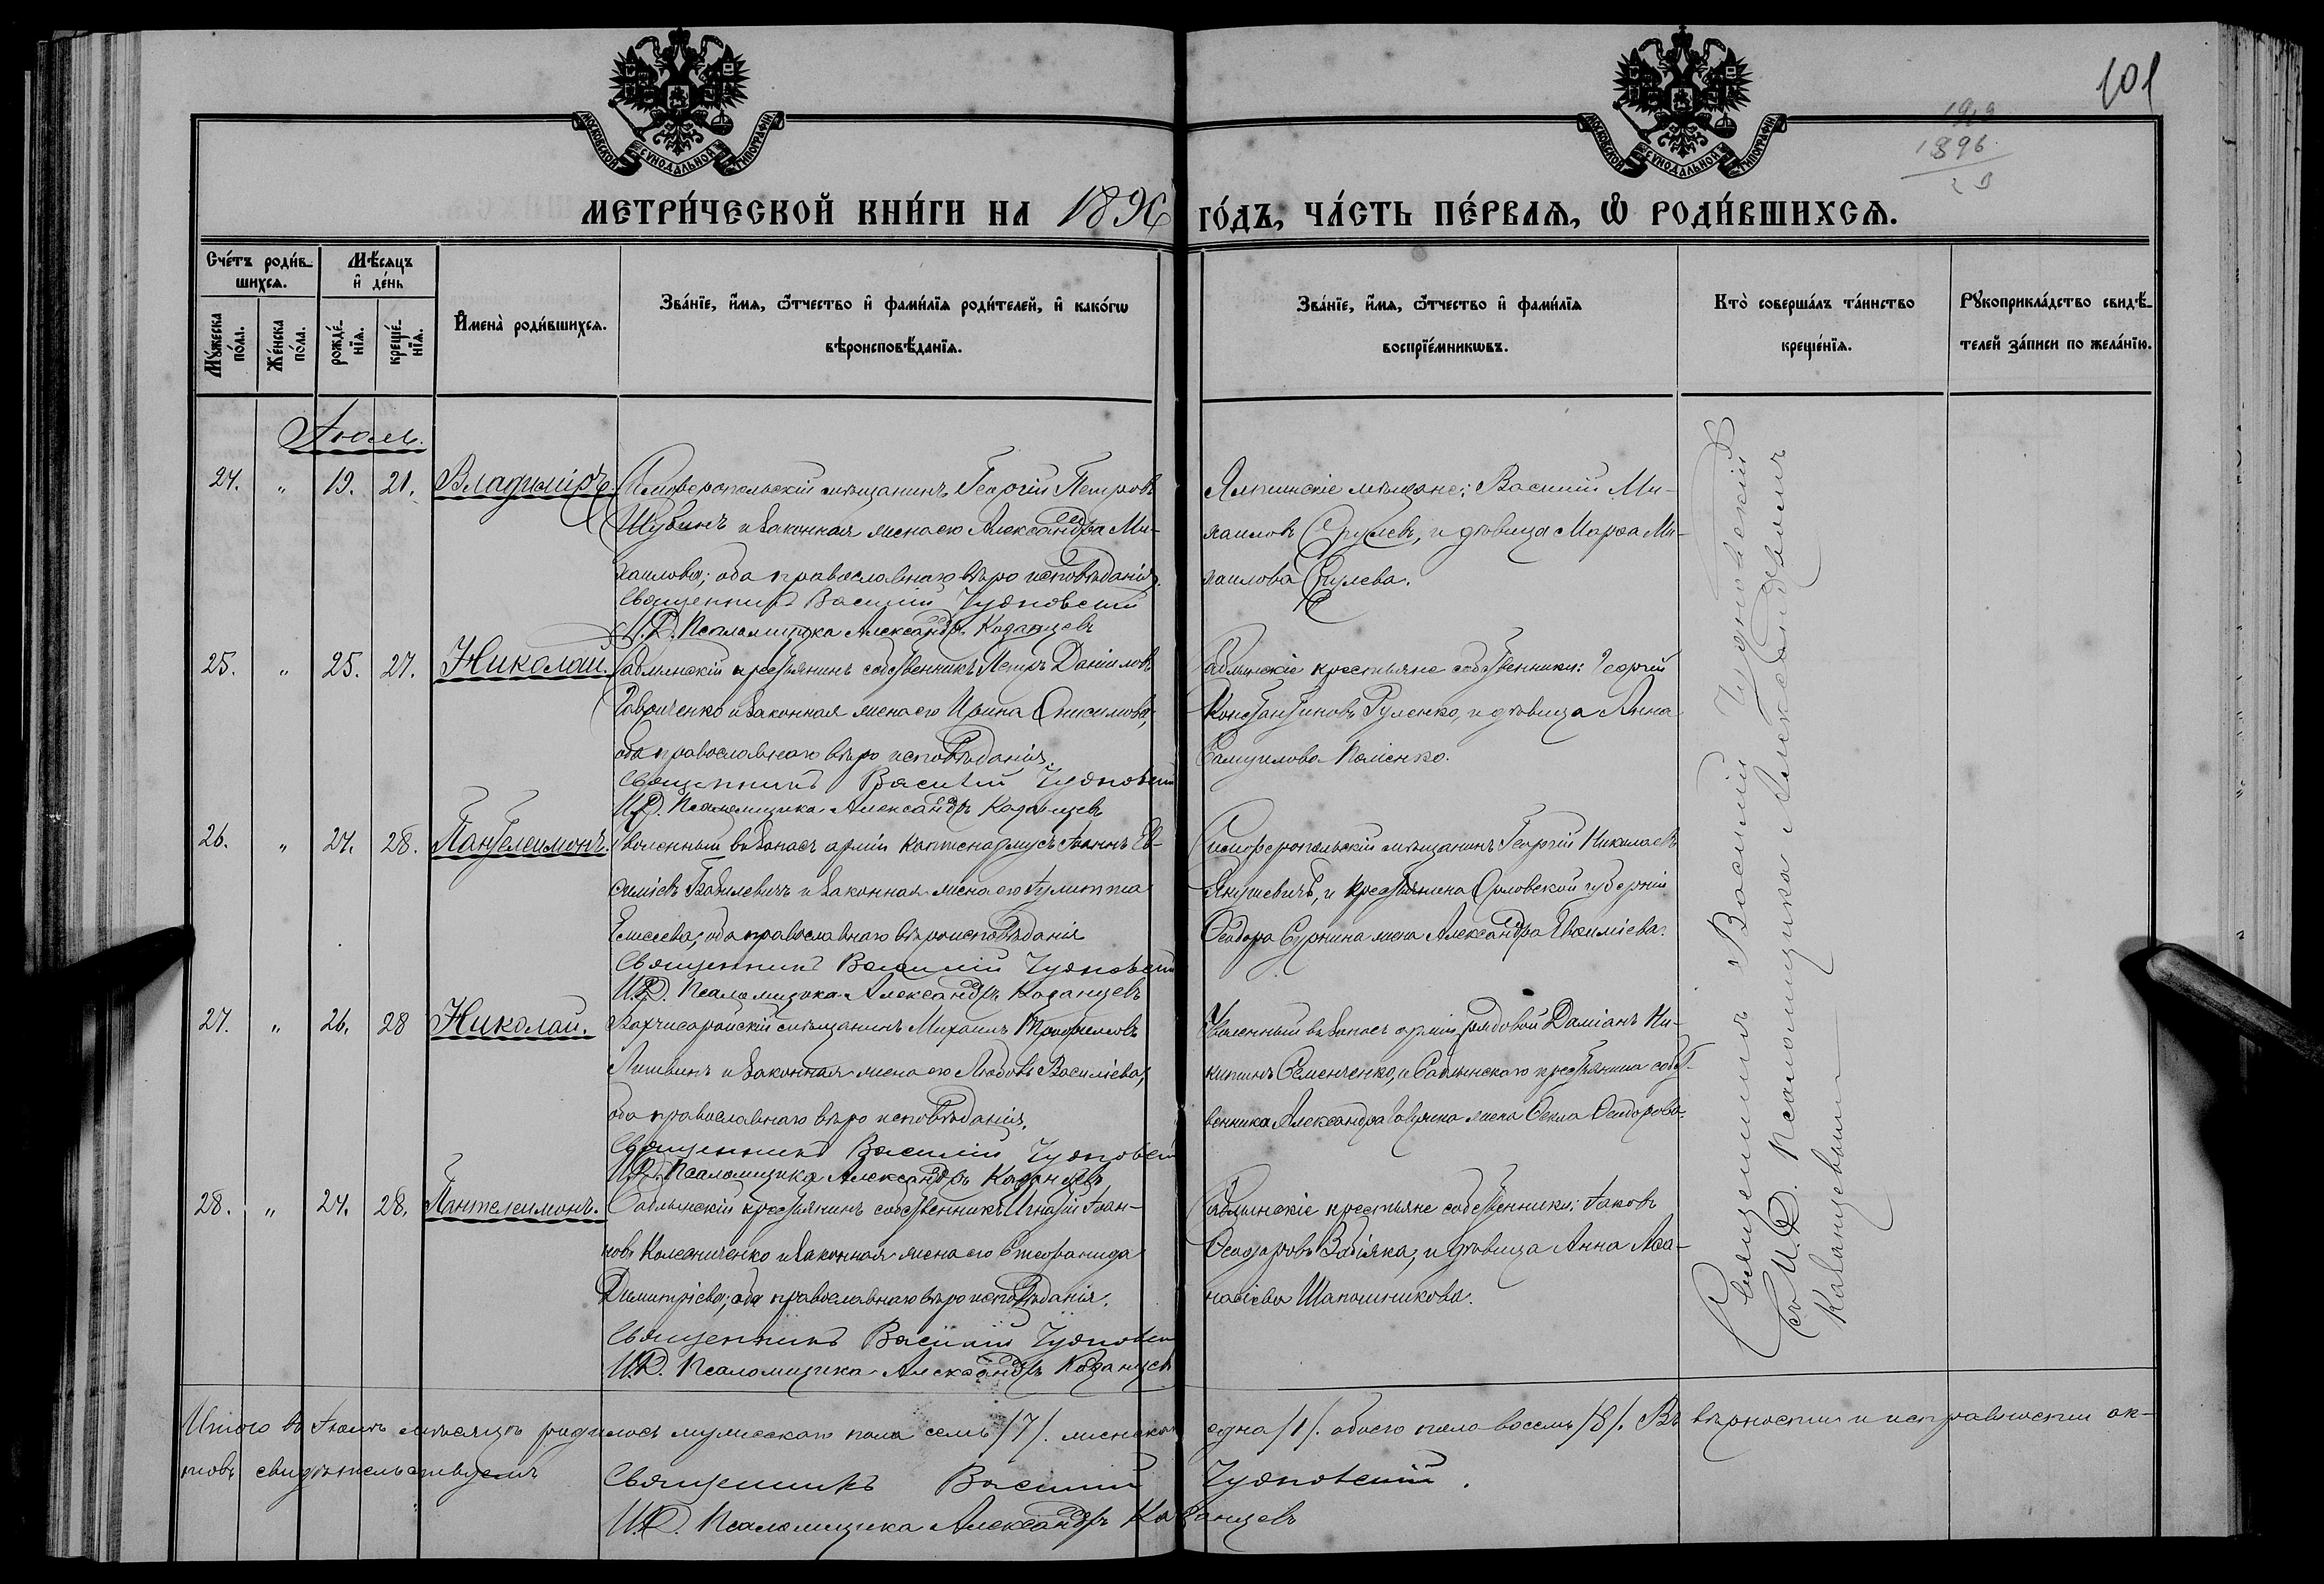 МОСКОВСКОЙ СѴНОДАЛЬНОЙ ТИПОГРАФІИ
МОСКОВСКОЙ СѴНОДАЛЬНОЙ ТИПОГРАФІИ
101
1896
МЕТРИ́ЧЕСКОЙ КНИ́ГИ НА 1896 ГО́ДЪ, ЧА́СТЬ ПЕ́РВАѦ, Ѡ҆ РОДИ́ВШИХСѦ.
Сче́тъ роди́в-
шихсѧ.
Мꙋ́жеска по́ла.
Же́нска по́ла.
Мѣ́сѧцъ
и҆ де́нь
рожде́-
нїѧ.
креще́-
нїѧ.
И҆мена̀ роди́вшихсѧ.
Зва́нїе, и҆́мѧ, ѻ҆́тчество и҆ фами́лїѧ роди́телей, и҆ како́гѡ
вѣроисповѣ́данїѧ.
Зва́нїе, и҆́мѧ, ѻ҆́тчество и҆ фами́лїѧ
воспрїе́мникѡвъ.
Кто̀ соверша́лъ та́инство
креще́нїѧ.
Рꙋкоприкла́дство свидѣ́-
телей за́писи по жела́нїю.
Іюль.
24. " 19. 21. Владиміръ.
Симферопольскій мѣщанинъ Георгій Петровъ
Шубинъ и законная жена его Александра Ми-
хаилова; оба православнаго вѣроисповѣданія.
Священникъ Василій Чудновскій
И.Д. Псаломщика Александръ Казанцевъ
Ялтинскіе мѣщане: Василій Ми-
хаиловъ и дѣвица Марѳа Ми-
хаилова
25. " 25. 27. Николай.
Саблынскій крестьянинъ собственникъ Петръ Даніиловъ
Гавриченко и законная жена его Ирина Онисимова,
оба православнаго вѣроисповѣданія.
Священникъ Василій Чудновскій
И.Д. Псаломщика Александръ Казанцевъ
Саблынскіе крестьяне собственники: Георгій
Константиновъ Руленко, и дѣвица Анна
Самуилова
26. " 24. 28. Пантелеимонъ.
Уволенный въ запасъ арміи каптенармусъ Іоаннъ Ев-
ѳиміевъ и законная жена его Іулитта
Елисеева, оба православнаго вѣроисповѣданія
Священникъ Василій Чудновскій
И.Д. Псаломщика Александръ Казанцевъ
Симферопольскій мѣщанинъ Георгій Николаевъ
Янушевичъ, и крестьянина Орловской губерніи
Ѳеодора Сурнина жена Александра Евѳиміева.
27. " 26. 28 Николай.
Бахчисарайскій мѣщанинъ Михаилъ Трофимовъ
Литвинъ и законная жена его Любовь Василіева,
оба православнаго вѣроисповѣданія.
Священникъ Василій Чудновскій
И.Д. Псаломщика Александръ Казанцевъ
Уволенный въ запасъ арміи рядовой Даміанъ Ни-
китинъ Семенченко, и Саблынскаго крестьянина собст-
венника Александра жена Ѳекла Ѳеодорова.
28. " 24. 28. Пантелеимонъ.
Саблынскій крестьянинъ собственникъ Игнатій Іоан-
новъ Колесниченко и законная жена его Стефанида
Димитріева, оба православнаго вѣроисповѣданія.
Священникъ Василій Чудновскій
И.Д. Псаломщика Александръ Казанцевъ
Саблынскіе крестьяне собственники: Іаковъ
Ѳеодоровъ Забіяка, и дѣвица Анна Аѳа-
насіева Шапошникова.
Священникъ Василій Чудновскій
съ И.Д. Псаломщика Александромъ
Казанцевымъ
Итого въ Іюлѣ мѣсяцѣ родилось мужескаго пола семь /7/. женскаго одна /1/. обоего пола восемь /8/. Въ вѣрности и исправности ак-
товъ свидѣтельствуемъ
Священникъ Василій Чудновскій.
И.Д. Псаломщика Александръ Казанцевъ